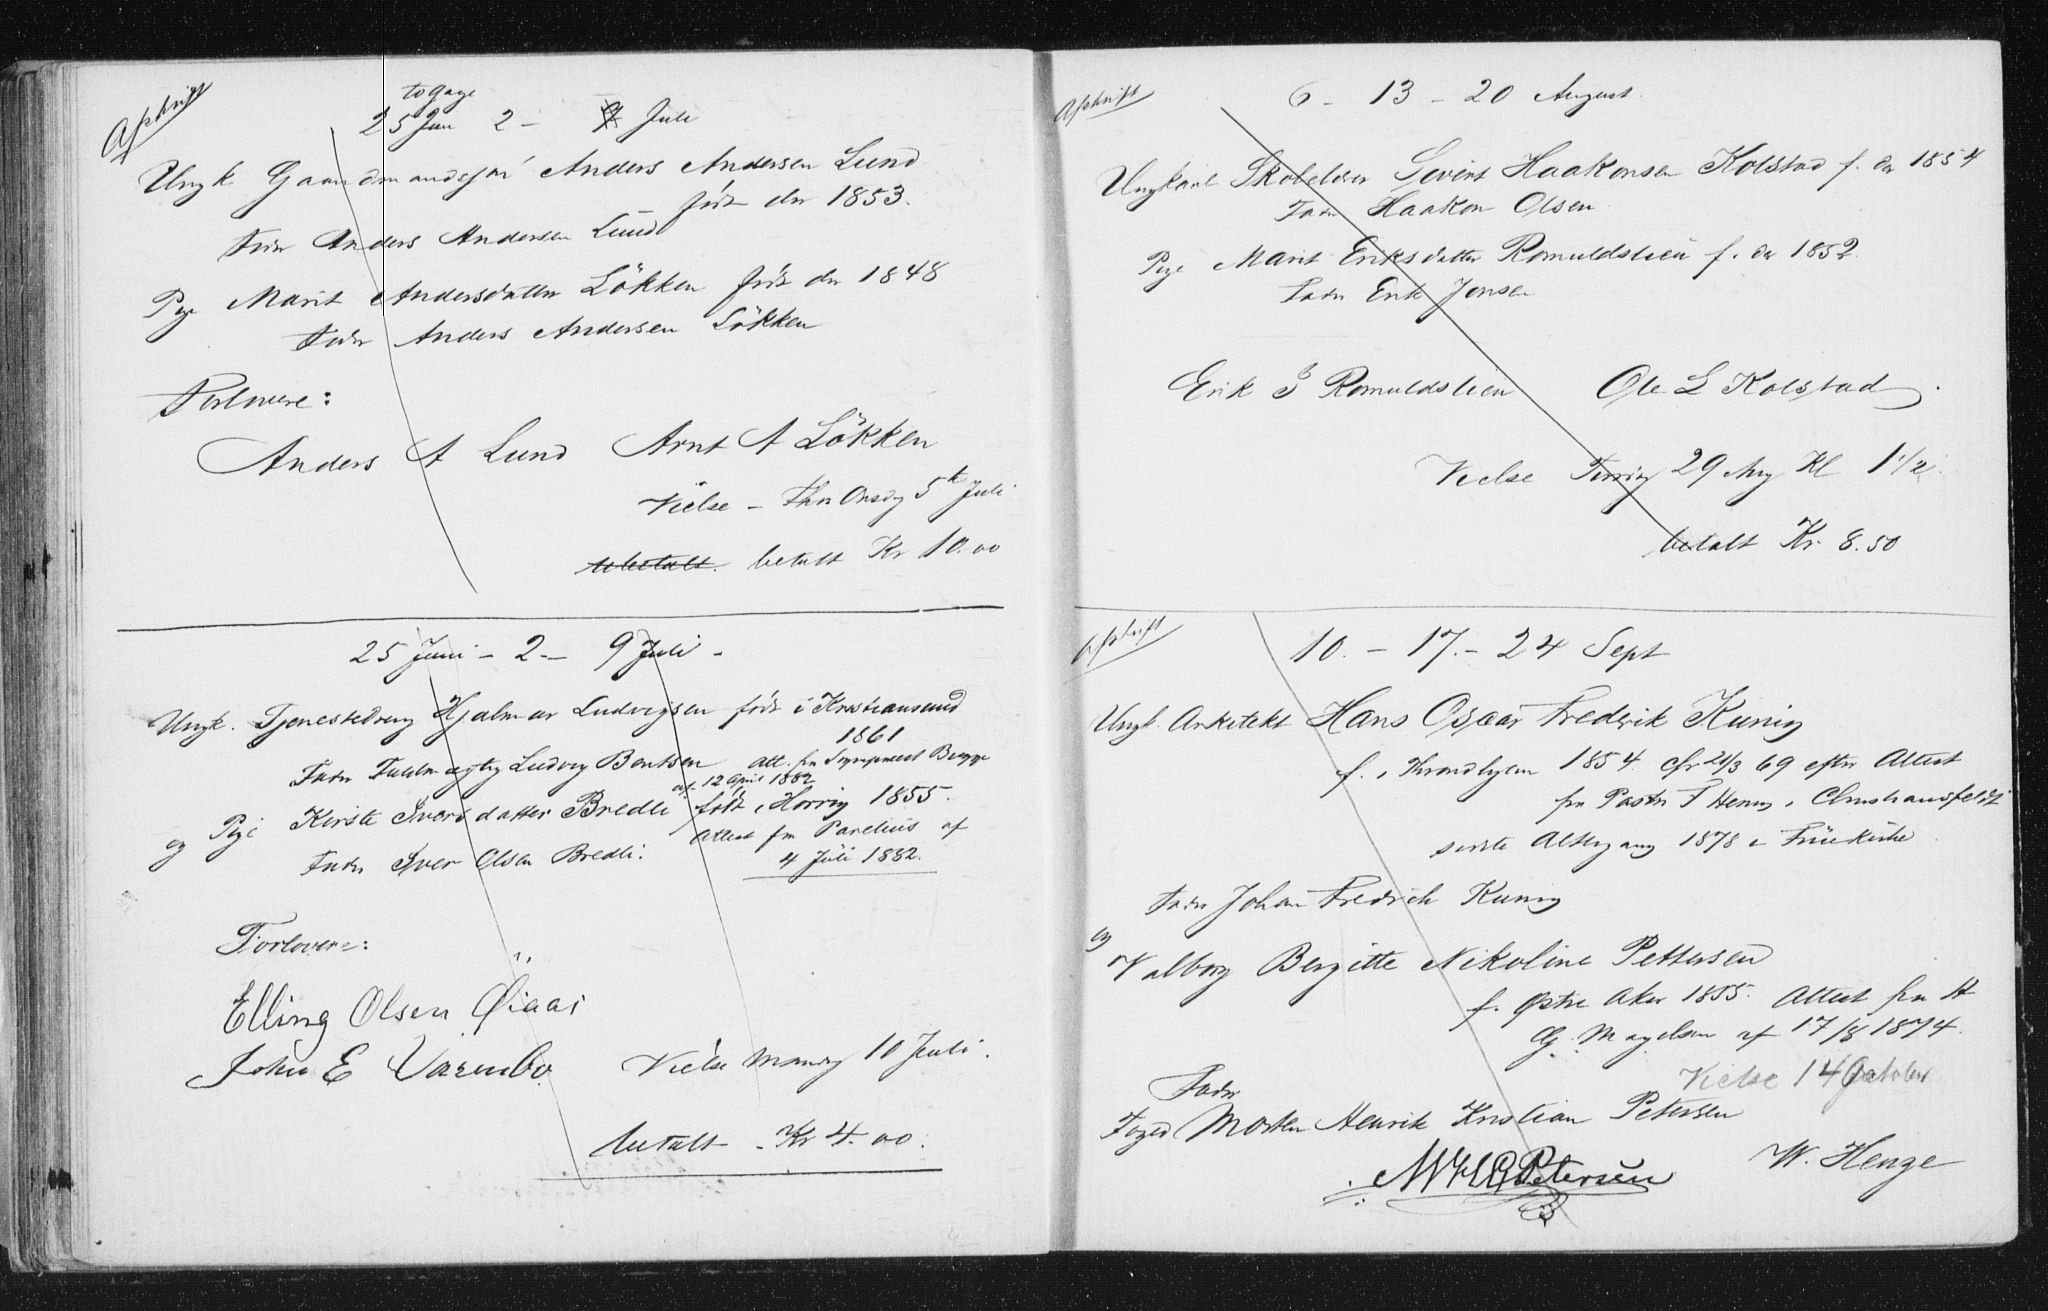 Afskrift
to gage
25 Jun 2 - 9 Juli
Ungk Gaardmandssøn Anders Andersen Lund
født der 1853.
Fader Anders Andersen Lund
Pige Marit Andersdatter Lökken født der 1848
Fader Anders Andersen Lökken
Forlovere:
Anders A Lund Arnt A Lökken
Vielse - Onsdag 5te Juli
ubetalt. betalt Kr 10.00
25 Juni - 2 - 9 Juli -
Ungk. Tjenestedreng Hjalmar Ludvigsen født i Kristiansund
1861
Fader Fuldmægtig Ludvig Bentsen Att. fra Sogneprest Brygge
af 12 April 1882
og Pige Kirsti Iversdatter Bredli født i Horrig 1855.
Attest fra Parelius af
Fader Iver Olsen Bredli.
4 Juli 1882.
Forlovere:
Elling Olsen Øiaas
John E Varmbo Vielse Mandag 10 Juli.
betalt - Kr 4.00.
Afskrift
6 - 13 - 20 August.
Ungkarl Skolelærer Sivert Haakonsen Kolstad f. der 1854
Fader Haakon Olsen
Pige Marit Eriksdatter Romuldslien f. der 1852.
Fader Erik Jonsen
Erik J Romuldslien Ole L Kolstad
Vielse Tirsdag 29 Aug Kl 1 1/2.
betalt Kr. 8.50
Afskrift
10. - 17. - 24 Sept
Ungk. Arkitekt Hans Oscar Fredrik Kunig
f. i Throndhjem 1854. Cfr 21/3 69 efter Attest
fra Pastor i Christiansfeldt
sidste Altergang 1878 i Fruekirke
Fader Johan Fredrich Kunig
og
Valborg Bergitte Nikoline Pettersen
f. Østre Aker 1855. Attest fra H
G. Magelsen af 17/8 1874.
Vielse 14 October
Fader
Foged Morten Henrik Kristian Petersen
MHC Petersen W. Henge